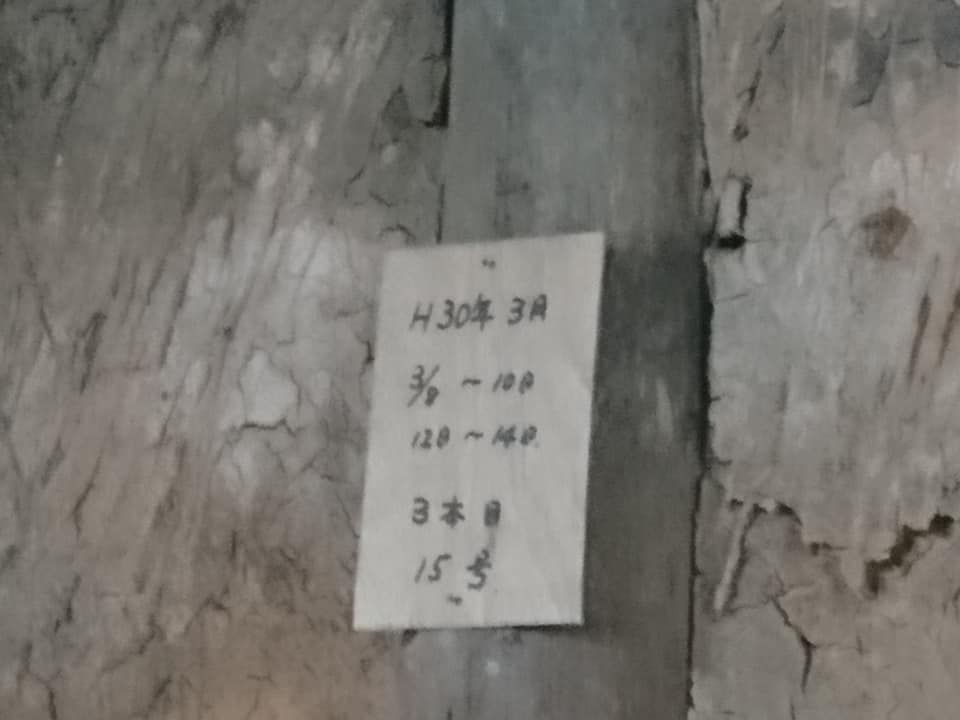 H30年 3月
3/8 ~ 10日
12日 ~ 14日
3本目
15号